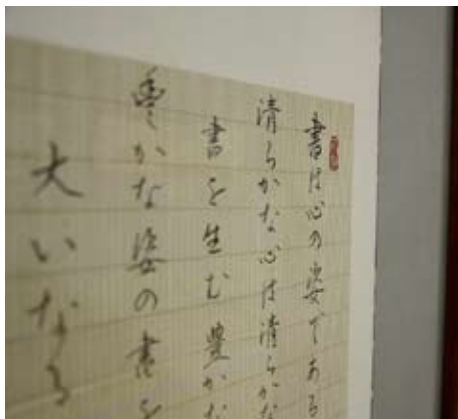 書は心の姿である
清らかな心は清らかな
書を生む豊かな
豊かな姿の書を
大いなる